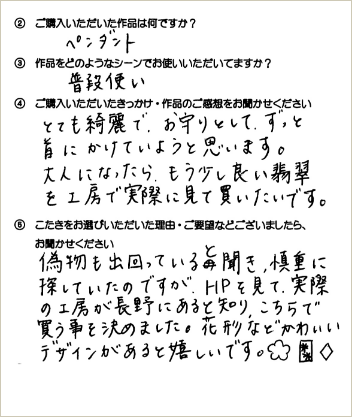 ② ご購入いただいた作品は何ですか？
ペンダント
③ 作品をどのようなシーンでお使いいただいてますか？
普段使い
④ ご購入いただいたきっかけ・作品のご感想をお聞かせください
とても綺麗で、お守りとして、ずっと
首にかけていようと思います。
大人になったら、もう少し良い翡翠
を工房で実際に見て買いたいです。
⑤ こたきをお選びいただいた理由・ご要望などございましたら、
お聞かせください
偽物も出回っていると聞き、慎重に
探していたのですが、HPを見て、実際
の工房が長野にあると知り、こちらで
買う事を決めました。花形などかわいい
デザインがあると嬉しいです。